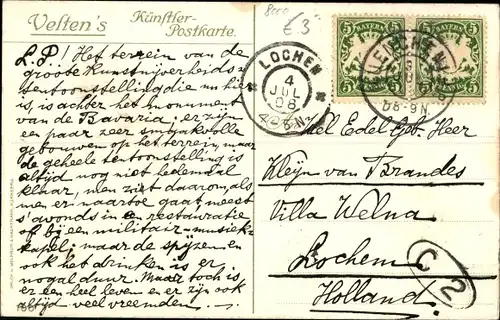 Velten's Künstler-Postkarte.
8000
£ 3
L.P! Het terrein van de
groote Kunstnijverheids =
tentoonstelling die nu hier
is, is achter het monument
van de Bavaria; er zijn
een paar zeer smaakvolle
gebouwen op het terrein, maar
de geheele tentoonstelling is
altijd nog niet heelemaal
klaar, men ziet daarom, als
men er naartoe gaat, meest
s'avonds in een restauratie
of bij een militair-muziek-
kapel; maar de spijzen en
ook het drinken is er
nogal duur. Maar toch is
er een heel leven en er zijn ook
altijd veel vreemden.
LOCHEM
4
JUL
06
BAYERN
5
BAYERN
5
8-9N
Edel Geb. Heer
Kleyn van Brandes
Villa Welna
Lochem
Holland.